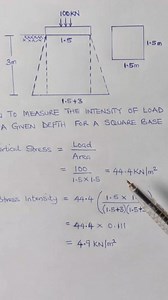 100KN
1.5
3m
1.5m
1.5m
1.5+3
TO MEASURE THE INTENSITY OF LOAD
A GIVEN DEPTH FOR A SQUARE BASE
Stress = Load
Area
= 100 = 44.4 KN/m²
1.5 x 1.5
Intensity = 44.4 (1.5 x 1.
(1.5+3)(1.5+
= 44.4 x 0.111
= 4.9 KN/m²